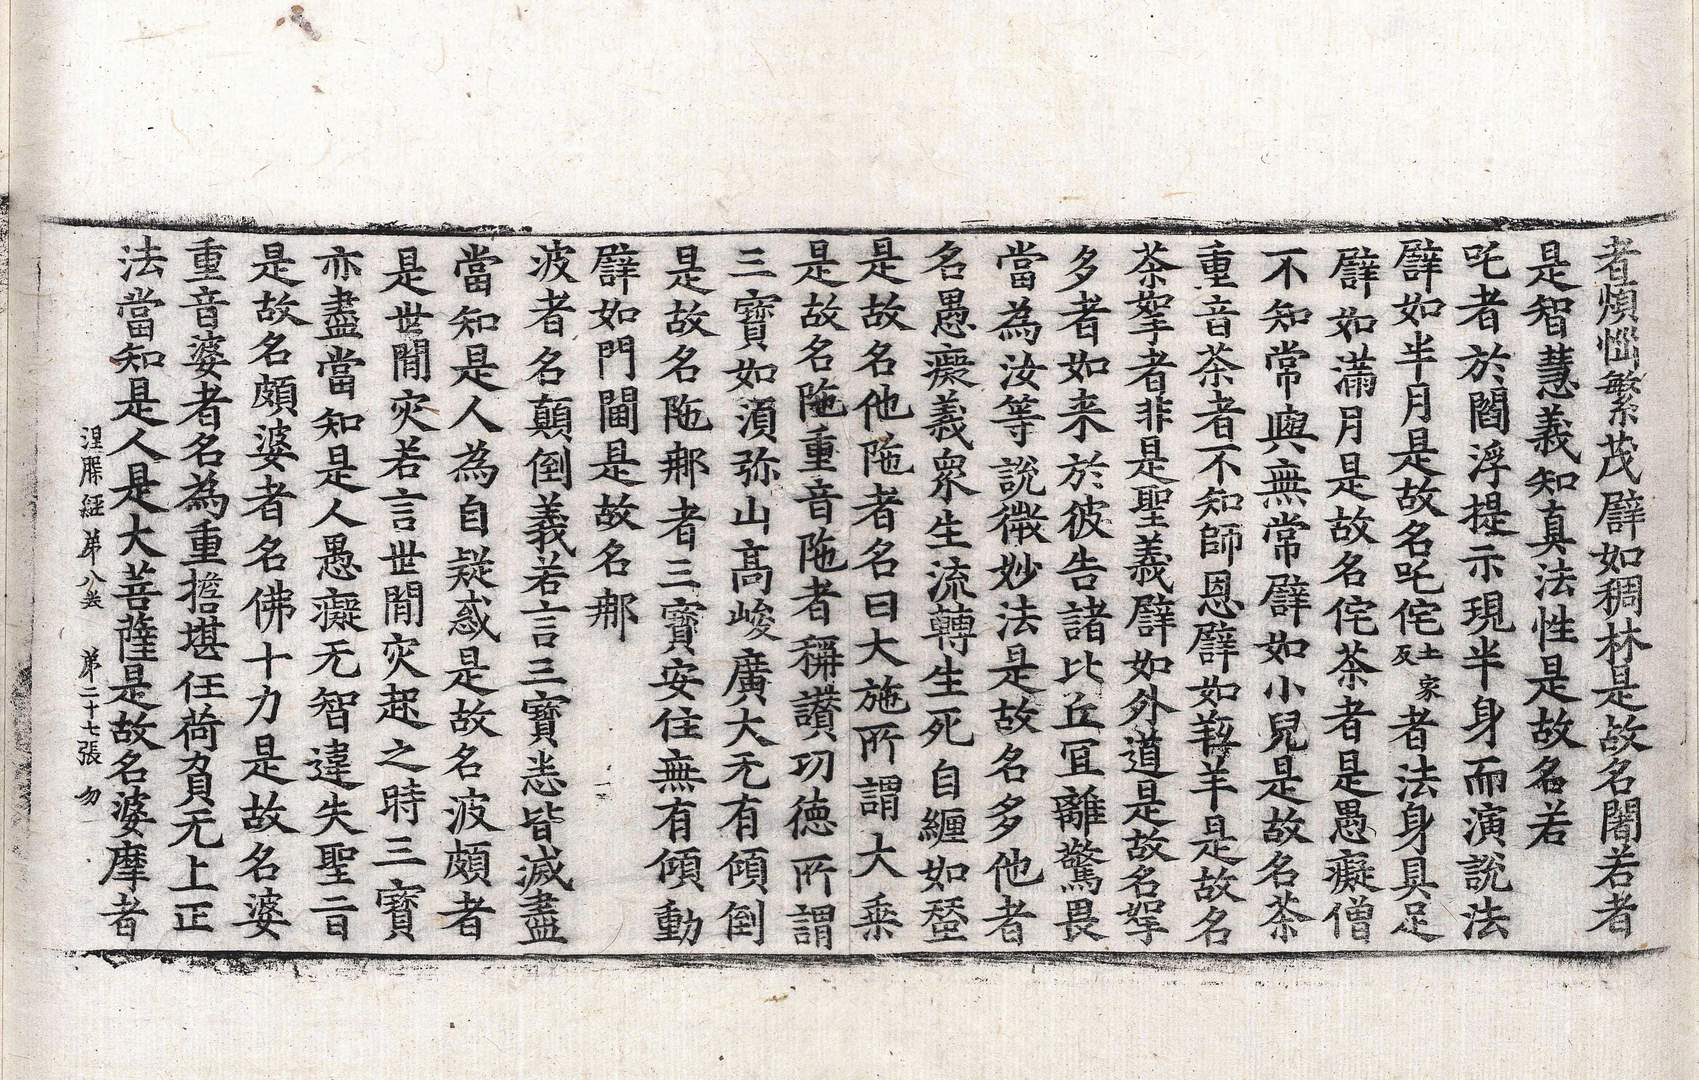 者煩惱繁茂譬如稠林是故名闍若者
是智慧義知真法性是故名若
吒者於閻浮提示現半身而演說法
譬如半月是故名吒侘土家反者法身具足
譬如滿月是故名侘茶者是愚癡僧
不知常與無常譬如小兒是故名茶
重音茶者不知師恩譬如羖羊是故名
茶拏者非是聖義譬如外道是故名拏
多者如来於彼告諸比丘冝離驚畏
當為汝等說微妙法是故名多他者
名愚癡義衆生流轉生死自纏如蝅
是故名他陁者名曰大施所謂大乗
是故名陁重音陁者稱讃功徳所謂
三寶如湏弥山高峻廣大无有傾倒
是故名陁那者三寶安住無有傾動
譬如門閫是故名那
波者名顛倒義若言三寶悉皆滅盡
當知是人為自疑惑是故名波頗者
是世閒灾若言世閒灾起之時三寶
亦盡當知是人愚癡无智違失聖㫖
是故名頗婆者名佛十力是故名婆
重音婆者名為重擔堪任荷負无上正
法當知是人是大菩薩是故名婆摩者
涅槃経 第八卷 第二十七張 勿